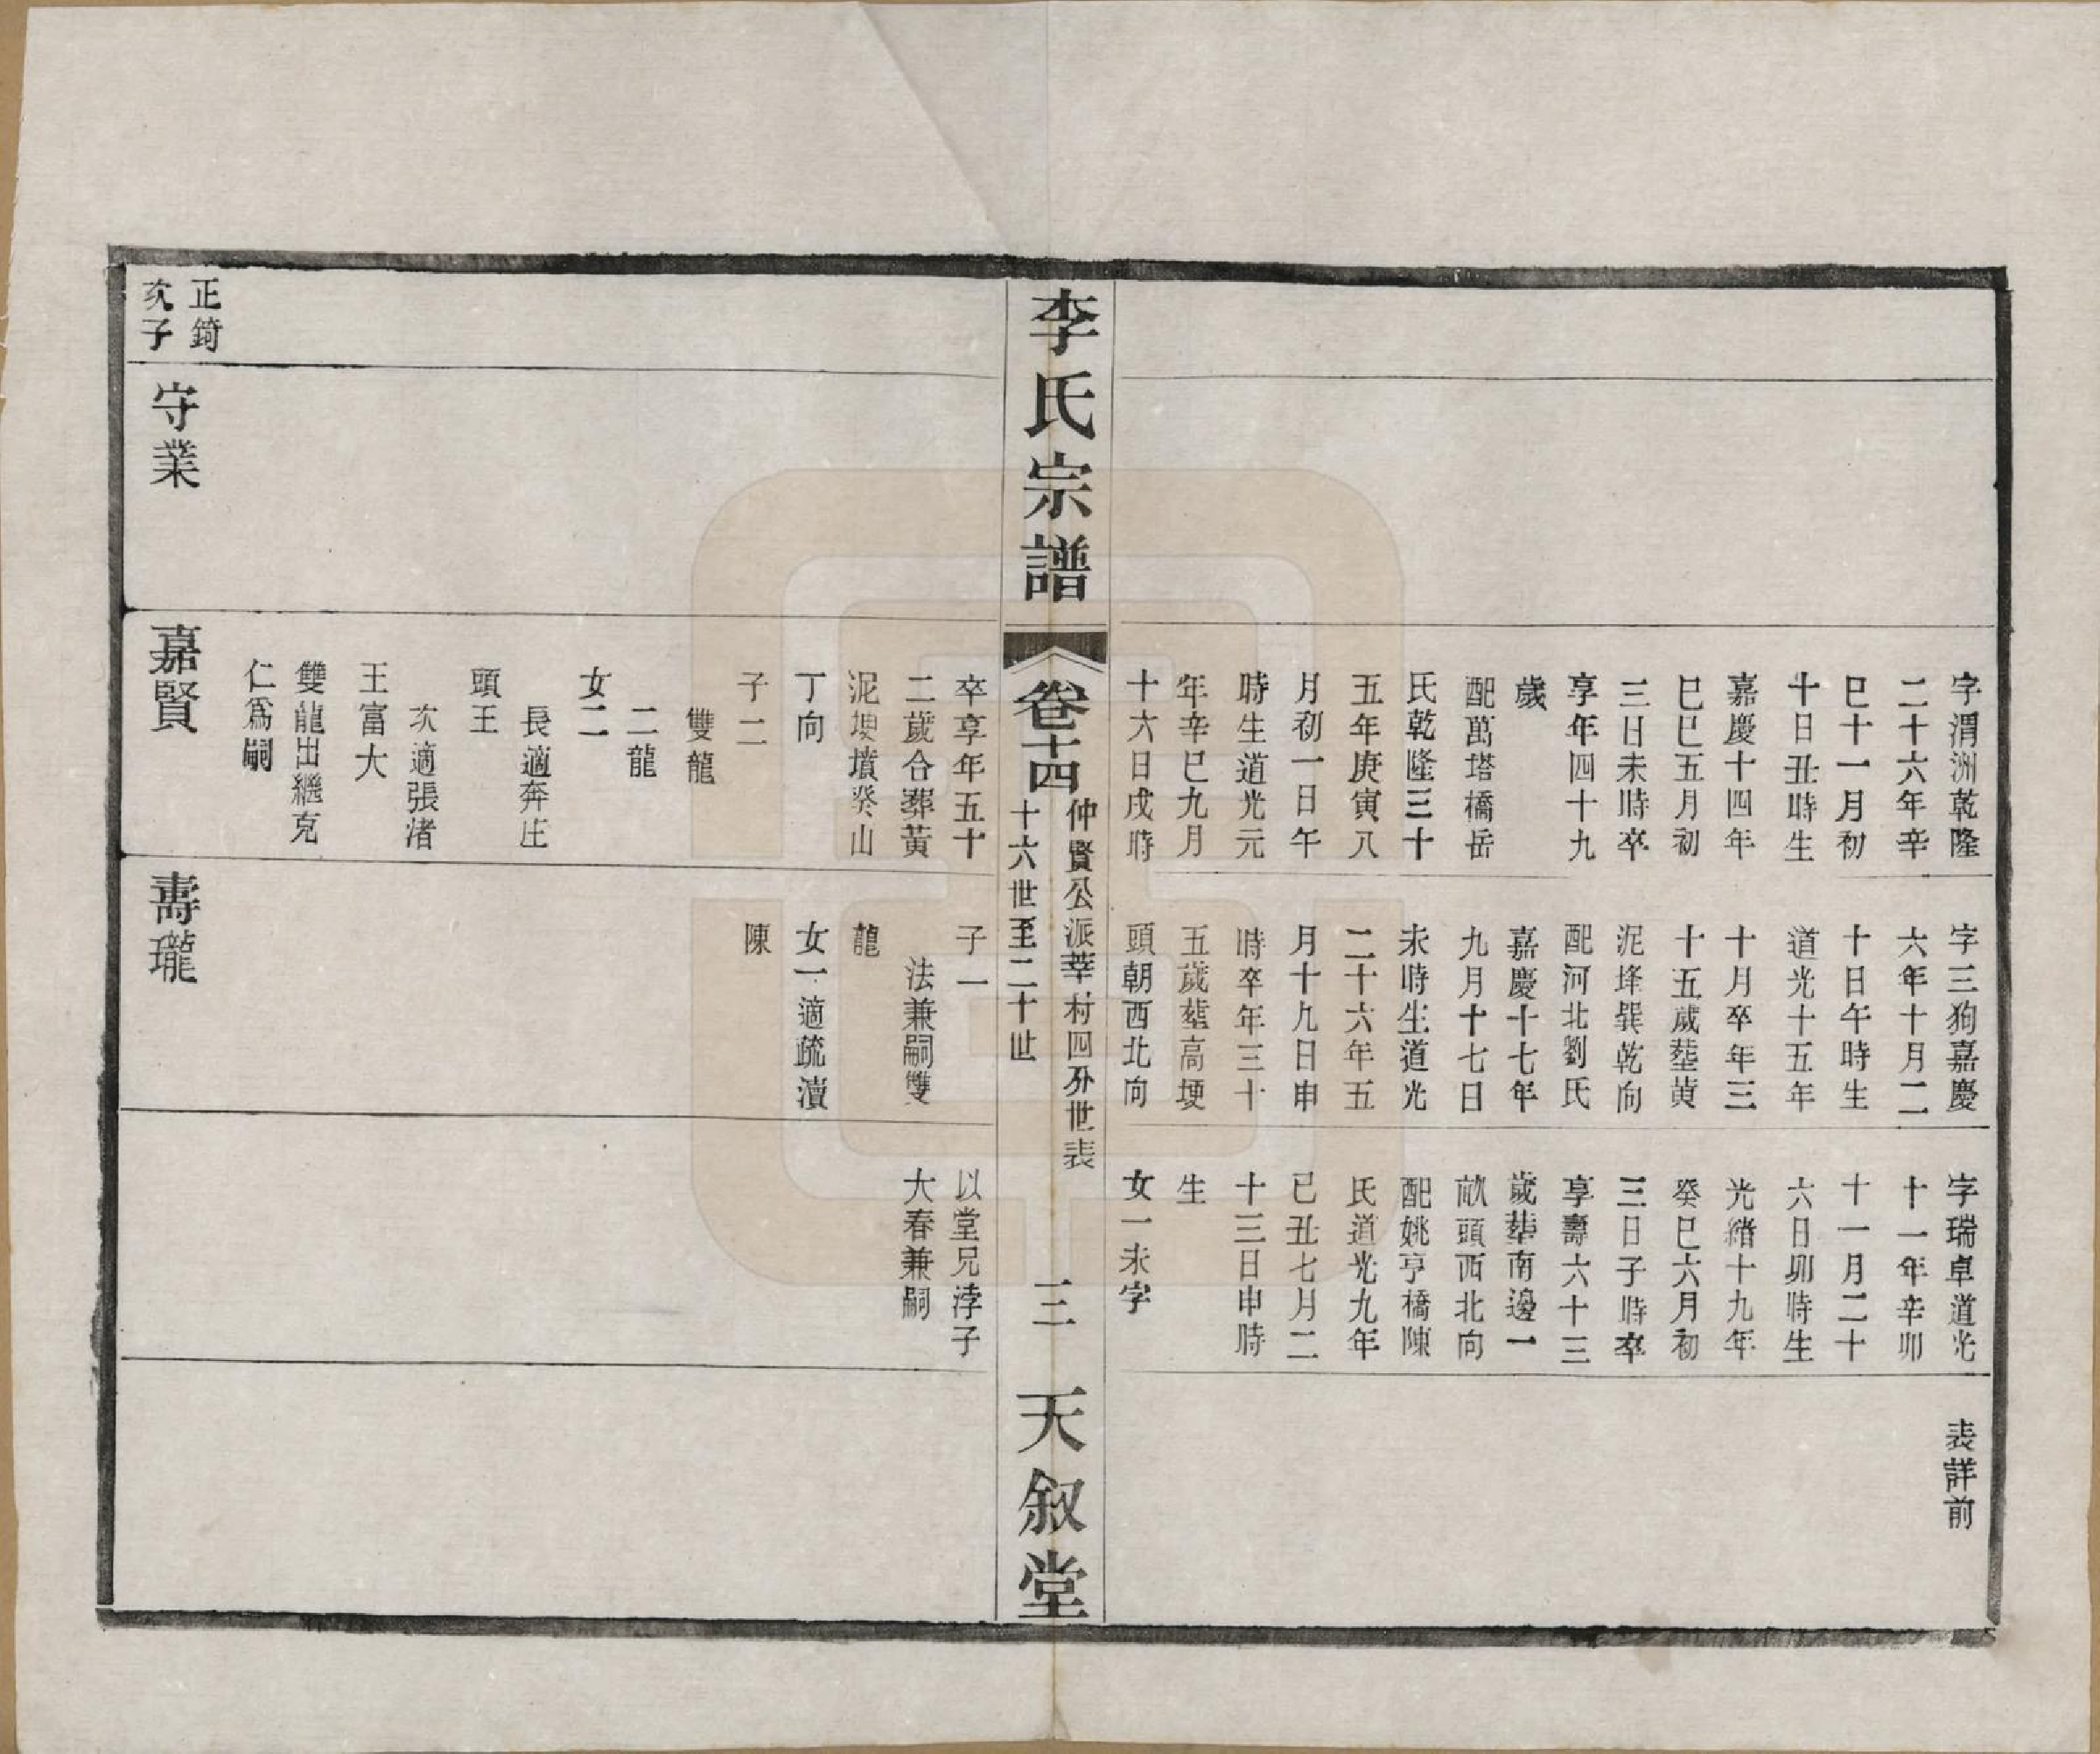 字渭洲乾隆
二十六年辛
巳十一月初
十日丑時生
嘉慶十四年
巳巳五月初
三日未時卒
享年四十九
歲
配萬塔橋岳
氏乾隆三十
五年庚寅八
月初一日午
時生道光元
年辛巳九月
十六日戌時
字三狗嘉慶
六年十月二
十日午時生
道光十五年
十月卒年三
十五歲塟黄
泥埄巽乾向
配河北劉氏
嘉慶十七年
九月十七日
未時生道光
二十六年五
月十九日申
時卒年三十
五歲塟高埂
頭朝西北向
字瑞卓道光
十一年辛卯
十一月二十
六日卯時生
光緒十九年
癸巳六月初
三日子時卒
享壽六十三
歲塟南邊一
畝頭西北向
配姚亨橋陳
氏道光九年
己丑七月二
十三日申時
生
女一未字
表詳前
李氏宗譜
卷十四
仲賢公派莘村四分世表
十六世至二十世
三
天叙堂
卒享年五十
二歲合葬黃
泥埂墳癸山
丁向
子二
雙龍
二龍
女二
長適奔庄
頭王
次適張渚
王富大
雙龍出繼克
仁爲嗣
子一
法兼嗣雙
龍
女一適疏瀆
陳
以堂兄浡子
大春兼嗣
正錡
次子
守業
嘉賢
壽瓏